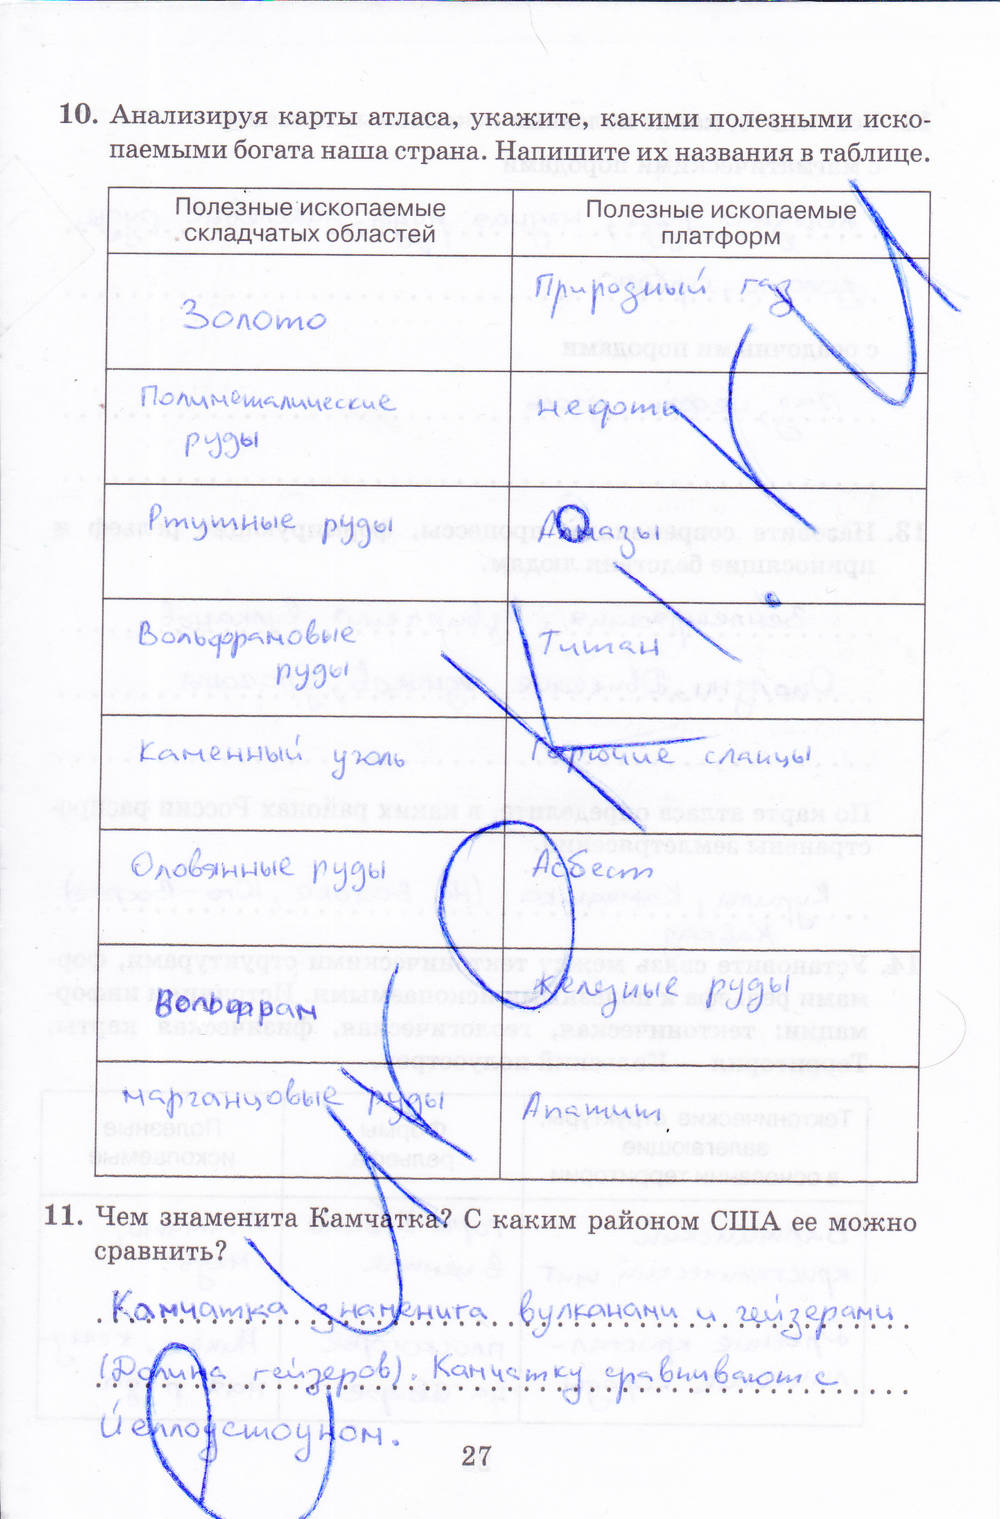 10. Анализируя карты атласа, укажите, какими полезными иско-
паемыми богата наша страна. Напишите их названия в таблице.
Полезные ископаемые
складчатых областей
Полезные ископаемые
платформ
Золото
Природный газ
Полиметалические
руды
Нефть
Ртутные руды
Алмазы
Вольфрамовые
руды
Титан
Каменный уголь
Горючие сланцы
Оловянные руды
Асбест
Вольфрам
Железные руды
марганцовые руды
Апатит
11. Чем знаменита Камчатка? С каким районом США ее можно
сравнить?
Камчатка знаменита вулканами и гейзерами
(Долина гейзеров). Камчатку сравнивают с
Йеллоустоуном.
27